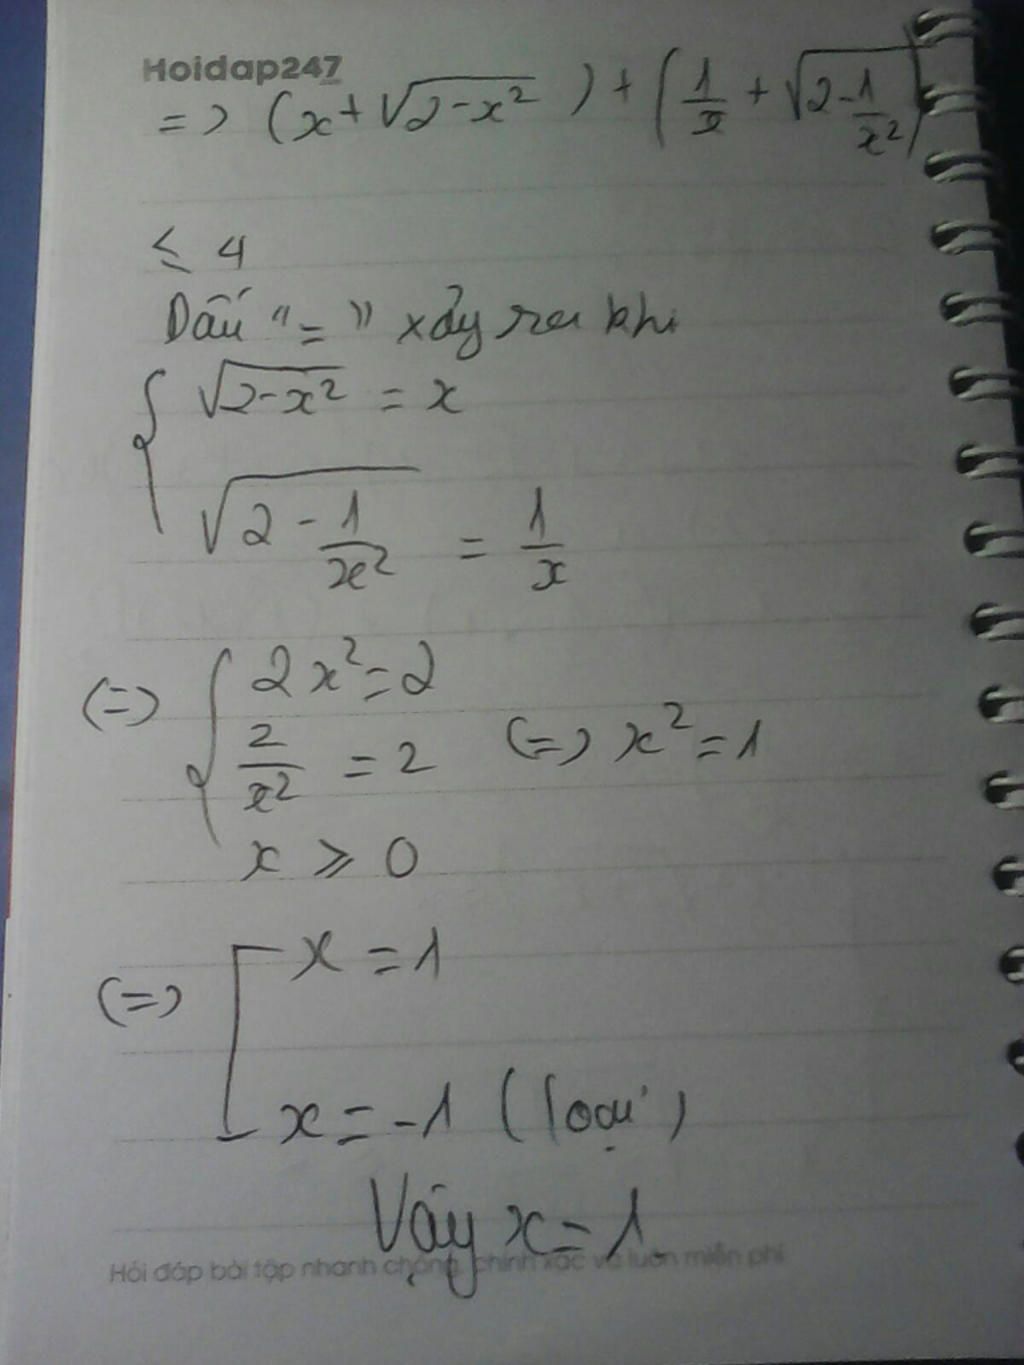 Hoidap247
=> (x + √(2 - x²)) + (1/x + √(2 - 1/x²))
≤ 4
Dấu "=" xảy ra khi
{ √(2 - x²) = x
√(2 - 1/x²) = 1/x
(=) { 2x² = 2
2/x² = 2 (=) x² = 1
x ≥ 0
(=) [ x = 1
x = -1 (loại)
Vậy x = 1
Hỏi đáp bài tập nhanh chóng, chính xác và luôn miễn phí